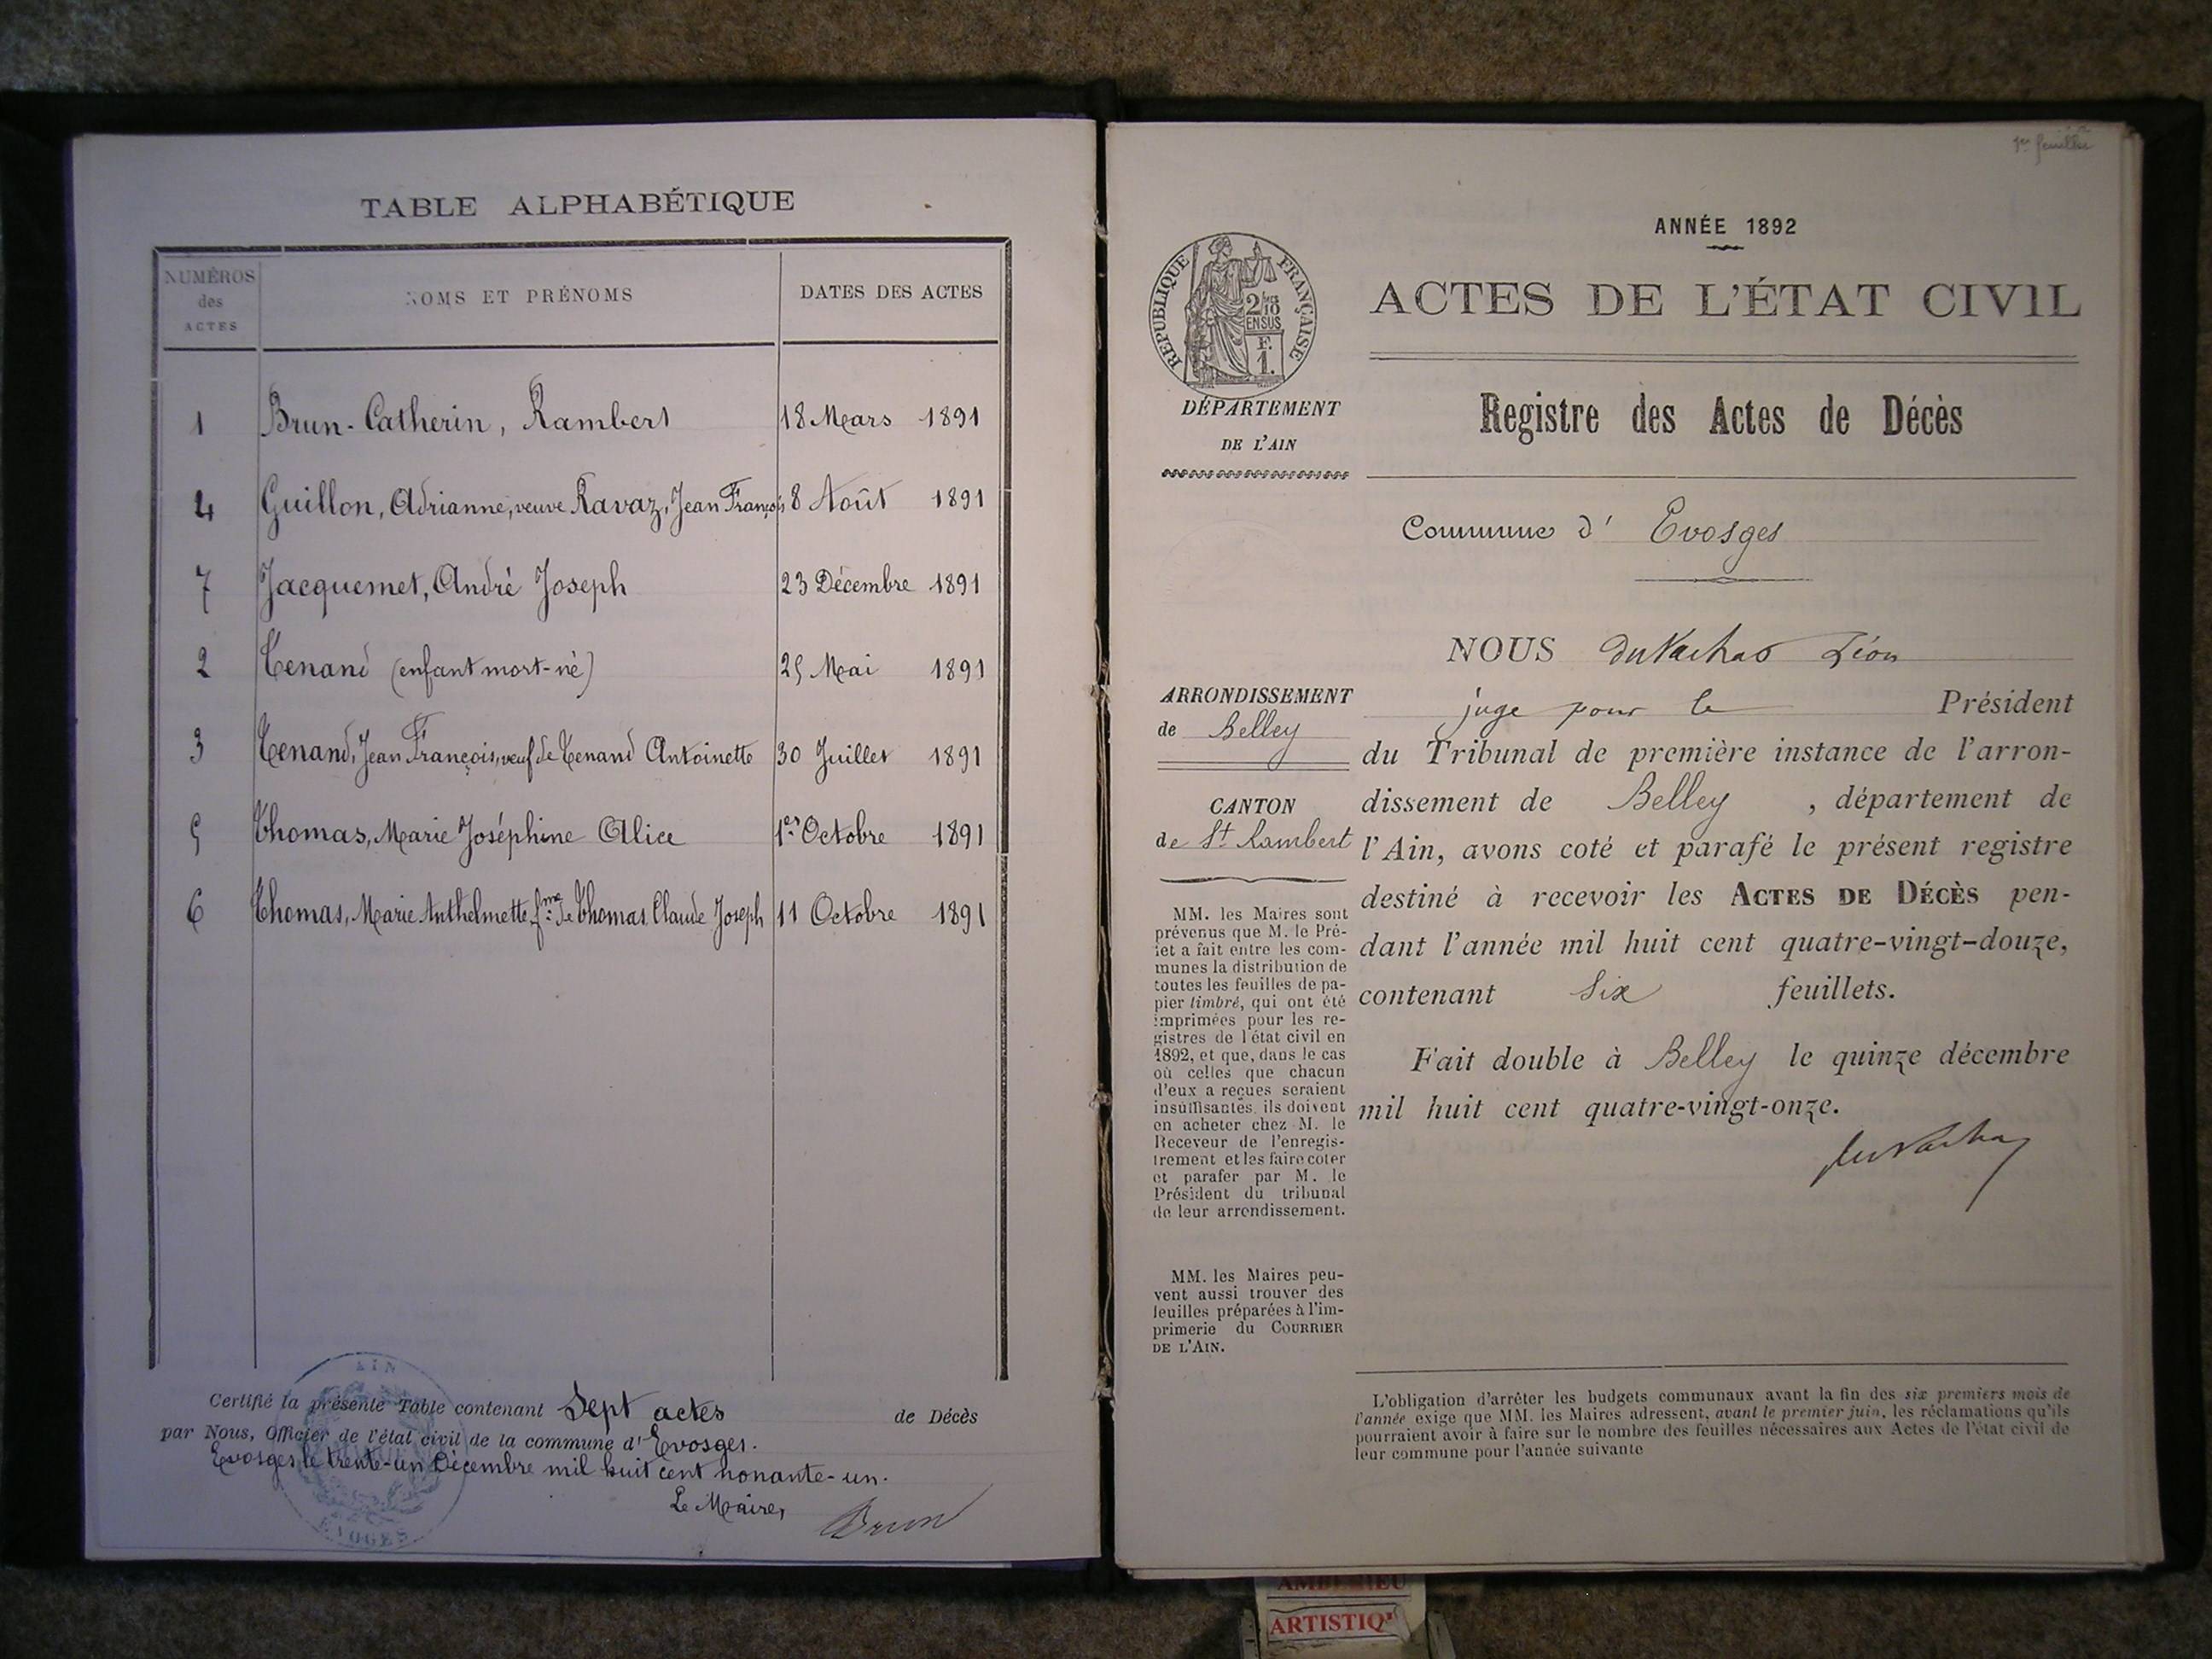 TABLE ALPHABÉTIQUE
NUMÉROS
des
ACTES
NOMS ET PRÉNOMS
DATES DES ACTES
1 Brun-Catherin, Rambert 18 Mars 1891
4 Guillon, Adrianne, veuve Ravaz, Jean François 8 Août 1891
7 Jacquemet, André Joseph 23 Décembre 1891
2 Tenand (enfant mort-né) 25 Mai 1891
3 Tenand, Jean François, veuf de Tenand Antoinette 30 Juillet 1891
5 Thomas, Marie Joséphine Alice 1er Octobre 1891
6 Thomas, Marie Anthelmette, fme de Thomas Claude Joseph 11 Octobre 1891
AIN
Certifié la présente Table contenant Sept actes de Décès
par Nous, Officier de l'état civil de la commune d'Evosges.
Evosges le trente-un Décembre mil huit cent nonante-un.
Le Maire,
Brun
1er feuillet
ANNÉE 1892
RÉPUBLIQUE FRANÇAISE
2/10
EN SUS
F.
1.
ACTES DE L'ÉTAT CIVIL
DÉPARTEMENT
DE L'AIN
Registre des Actes de Décès
Commune d' Evosges
ARRONDISSEMENT
de Belley
CANTON
de St Rambert
MM. les Maires sont
prévenus que M. le Pré-
fet a fait entre les com-
munes la distribution de
toutes les feuilles de pa-
pier timbré, qui ont été
imprimées pour les re-
gistres de l'état civil en
1892, et que, dans le cas
où celles que chacun
d'eux a reçues seraient
insuffisantes, ils doivent
en acheter chez M. le
Receveur de l'enregis-
trement et les faire coter
et parafer par M. le
Président du tribunal
de leur arrondissement.
MM. les Maires peu-
vent aussi trouver des
feuilles préparées à l'im-
primerie du COURRIER
DE L'AIN.
NOUS Léon
juge pour le Président
du Tribunal de première instance de l'arron-
dissement de Belley , département de
l'Ain, avons coté et parafé le présent registre
destiné à recevoir les ACTES DE DÉCÈS pen-
dant l'année mil huit cent quatre-vingt-douze,
contenant six feuillets.
Fait double à Belley le quinze décembre
mil huit cent quatre-vingt-onze.
L'obligation d'arrêter les budgets communaux avant la fin des six premiers mois de
l'année exige que MM. les Maires adressent, avant le premier juin, les réclamations qu'ils
pourraient avoir à faire sur le nombre des feuilles nécessaires aux Actes de l'état civil de
leur commune pour l'année suivante
ARTISTIQ